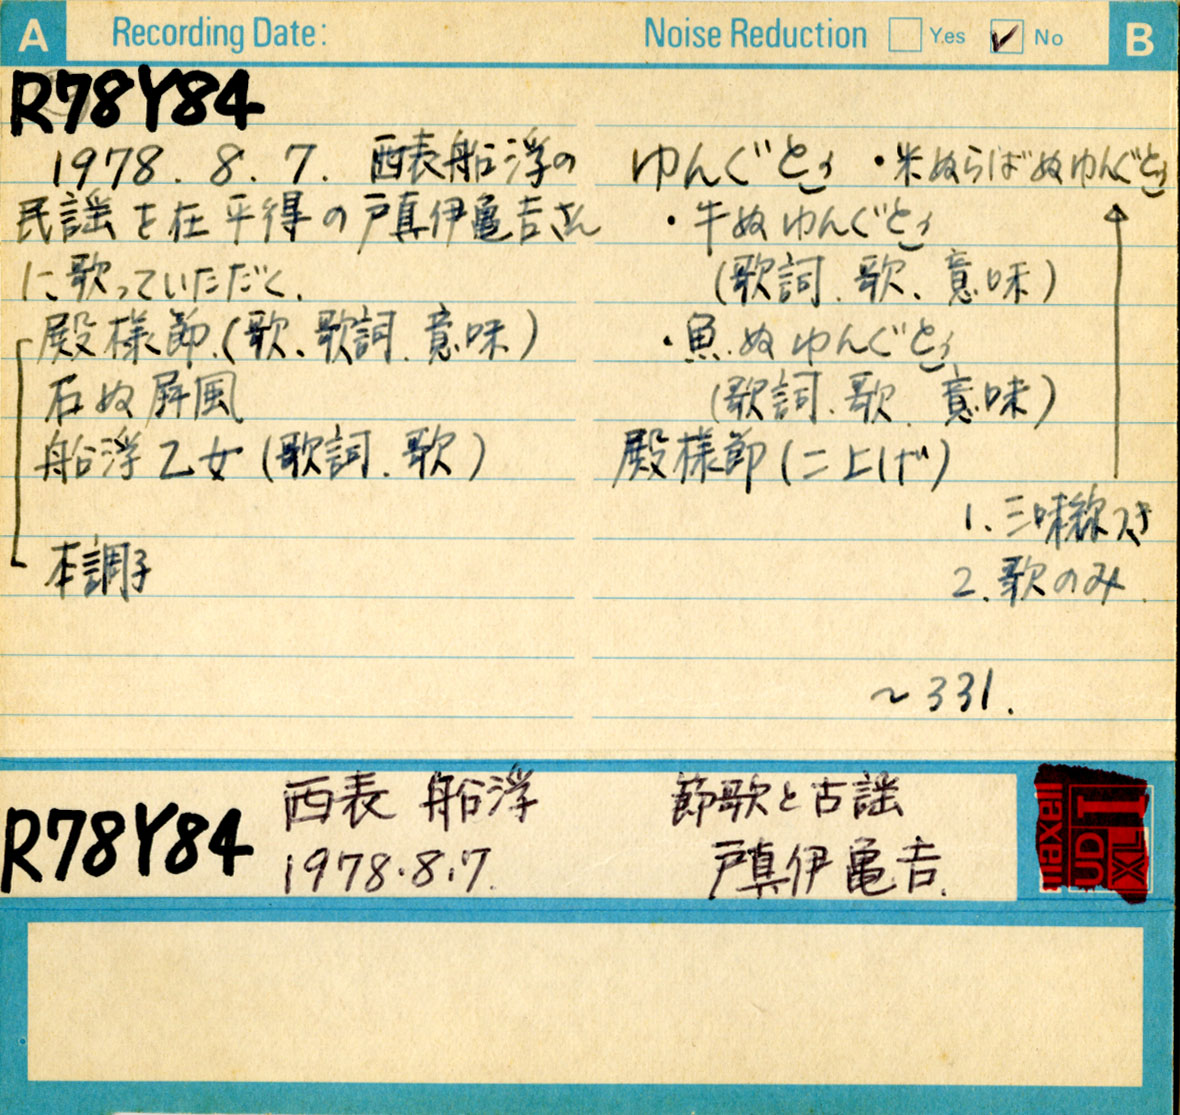 A Recording Date: Noise Reduction Yes No B
R78Y84
1978. 8. 7. 西表船浮の
民謡を在平得の戸真伊亀吉さん
に歌っていただく.
殿様節.(歌、歌詞.意味)
石ぬ屏風
船浮乙女(歌詞.歌)
本調子
ゆんぐとぅ ・米ぬらばぬゆんぐとぅ
・牛ぬゆんぐとぅ
(歌詞.歌、意味)
・魚ぬゆんぐとぅ
(歌詞.歌.意味)
殿様節(二上げ)
1. 三味線つき
2. 歌のみ
~331.
R78Y84
西表 船浮
1978.8.7.
節歌と古謡
戸真伊亀吉.
maxell
UD
XL